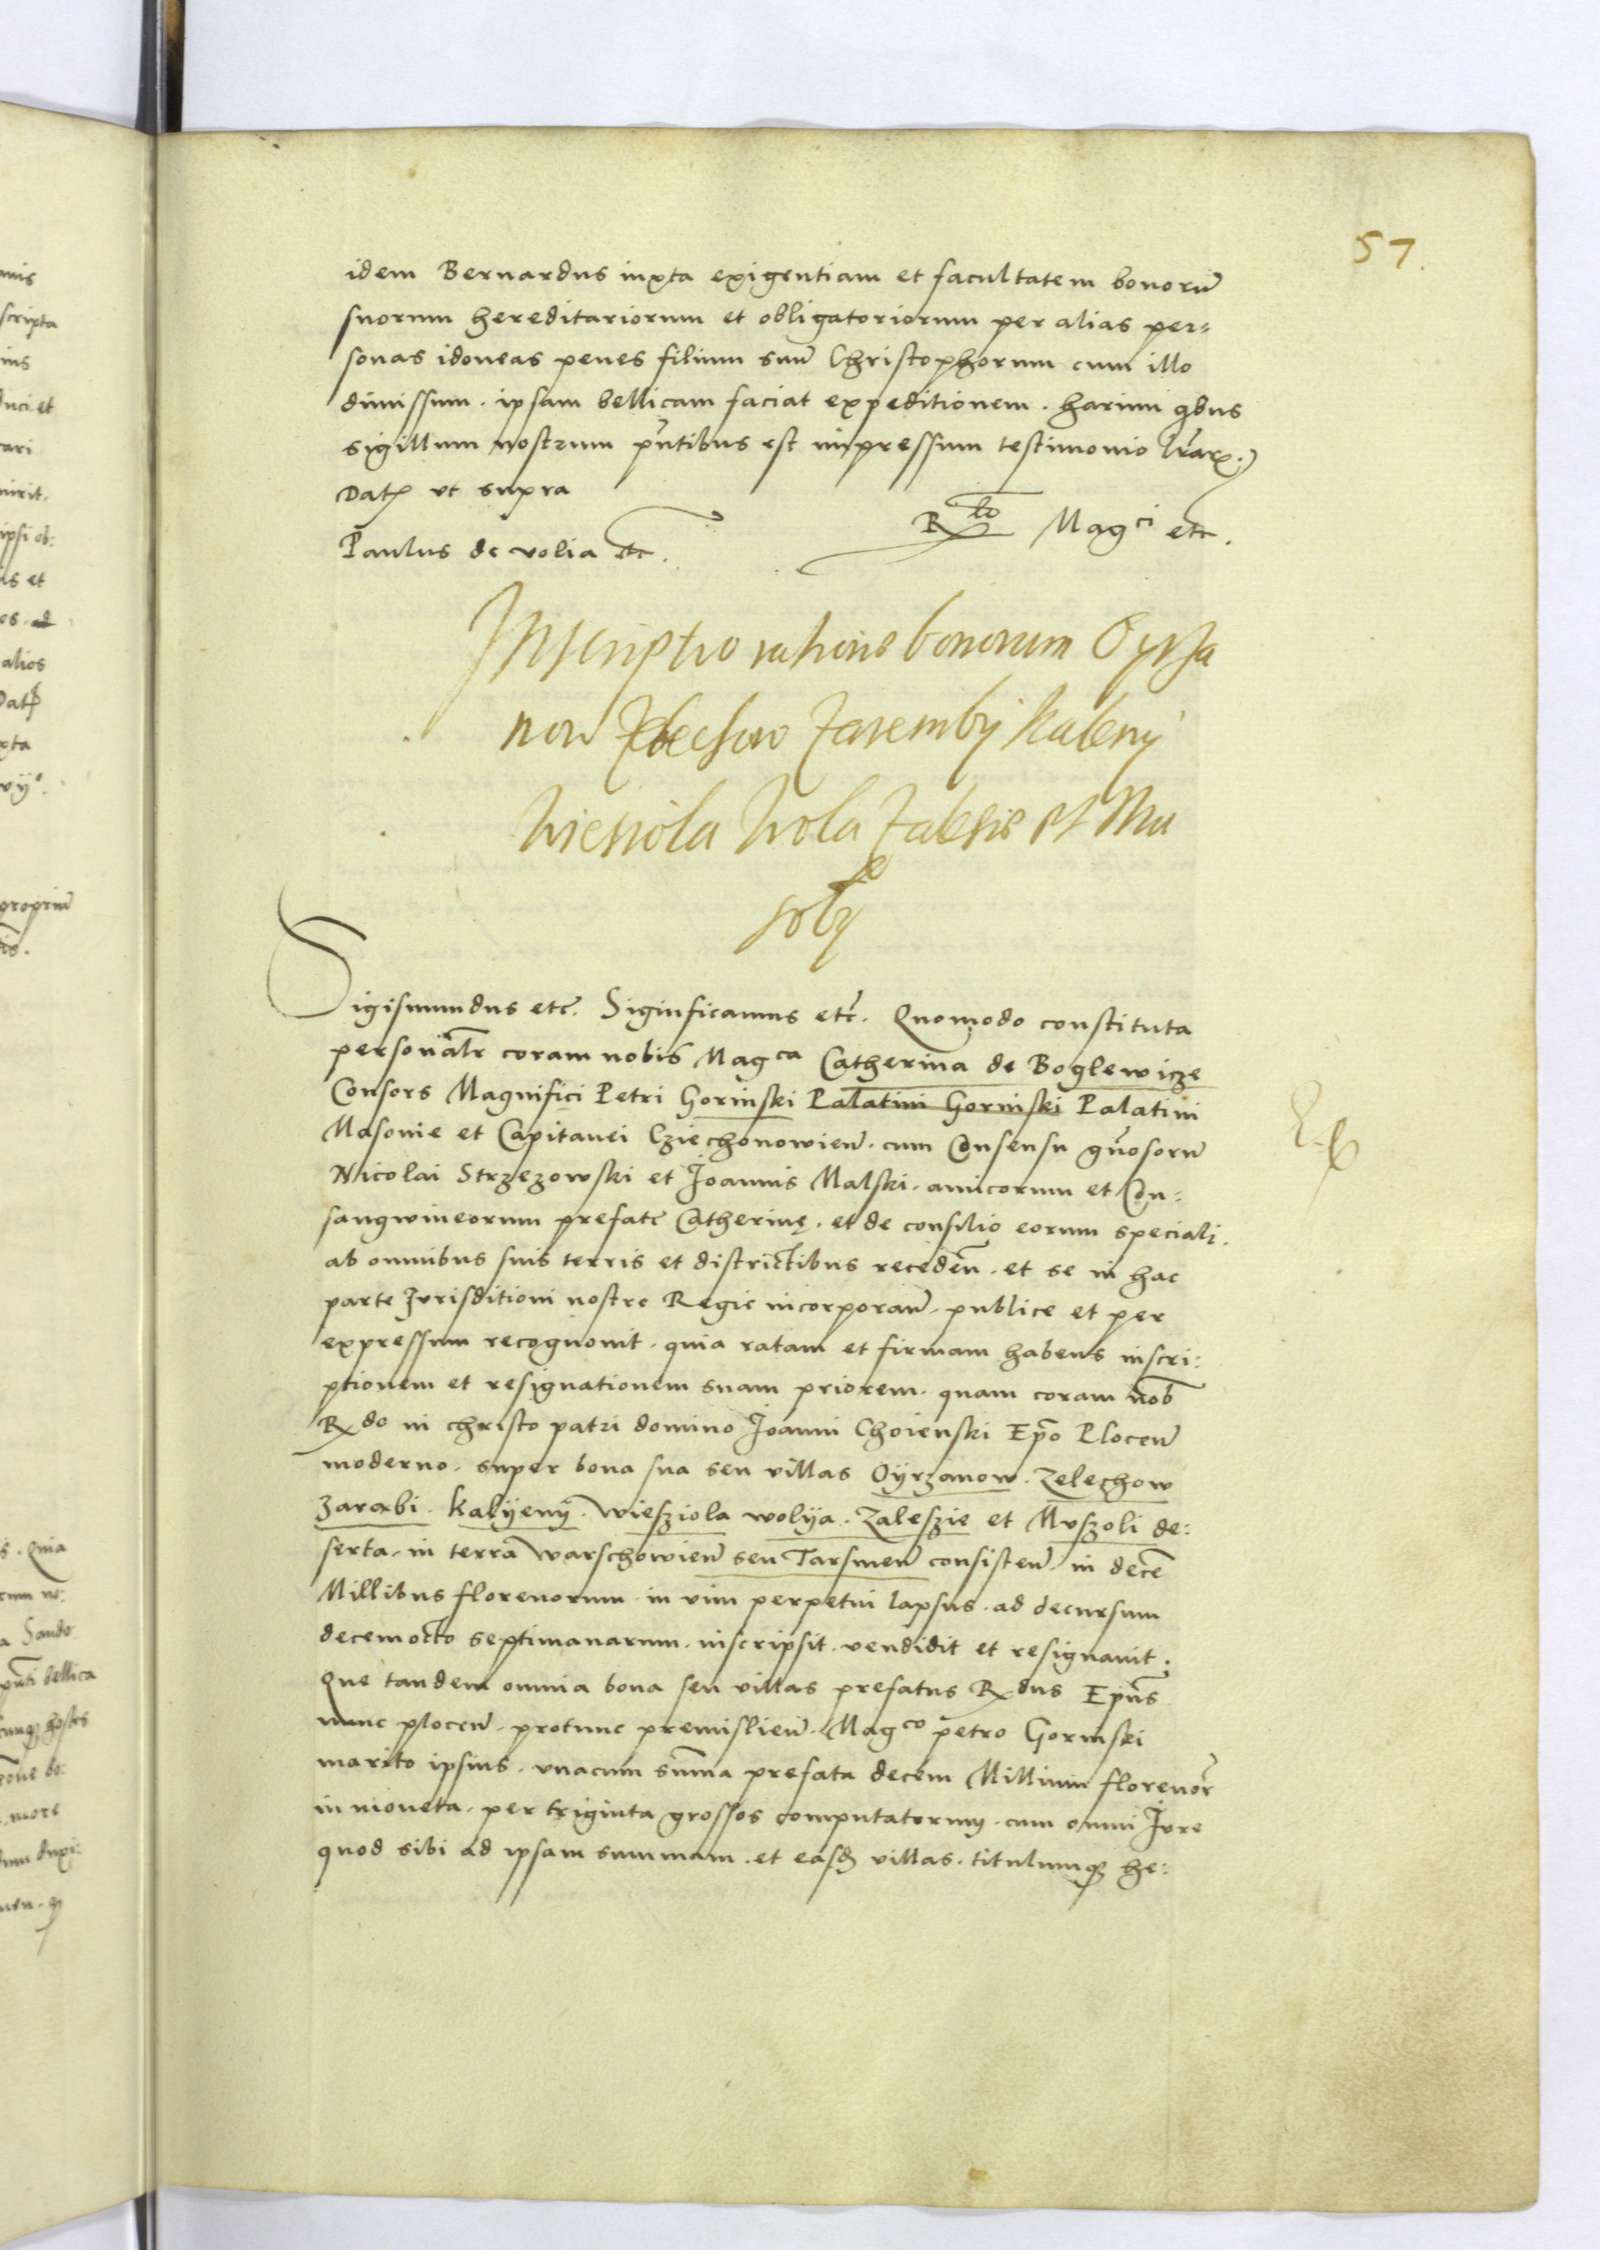 57.
idem Bernardus iuxta exigentiam et facultatem bonorũ
suorum hereditariorum et obligatoriorum per alias per=
sonas idoneas penes filium suũ Christophorum cum illo
dimissum. ipsam bellicam faciat expeditionem. harum qbus
sigillum nostrum pñtibus est impressum testimonio lr̃arꝝ.
Datꝭ ut supra
Rlo Magci etc.
Paulus de volia etc.
Inscriptio ratione bonorum Oyrza
now Zelechow Zarembÿ Kaleny
Wiesiola Wola Zalesie et Mu
soly
Sigismundus etc̃. Significamus etc̃. Quomodo constituta
personalr̃ coram nobis Magca Catherina de Boglewicze
Consors Magnifici Petri Gorinski Palatini Gorinski Palatini
Masovie et Capitanei Cziechonowieñ. cum Consensu gñosorũ
Nicolai Strzezowski et Joannis Malski. amicorum et Con:
sangwineorum prefate Catherinę. et de consilio eorum speciali.
ab omnibus suis terris et districtibus recedeñ. et se in hac
parte Jurisditioni nostre Regie incorporañ. publice et per
expressum recognovit. quia ratam et firmam habens inscri:
ptionem et resignationem suam priorem. quam coram nob̃
Rꝭdo in christo patri domino Joanni Choienski Ep̃o Ploceñ
moderno. super bona sua seu villas Oÿrzanow. Zelechow
Zarąbi. Kalÿenÿ. Wiesziola wolÿa. Zaleszie et Muszoli de:
serta. in terra Warschowieñ seu Tarsineñ consisteñ. in decẽ
Millibus florenorum. in vim perpetui lapsus. ad decursum
decemocto septimanarum. inscripsit. vendidit et resignavit.
Que tandem omnia bona seu villas prefatus Rꝭdus Ep̃us
nunc ploceñ. protunc premislieñ. Magco petro Gorinski
marito ipsius. unacum sum̃a prefata decem Millium florenor̃
in moneta. per triginta grossos computatorum. cum omni Jure
quod sibi ad ipsam summam. et easdꝭ villas. titulumqꝫ he: